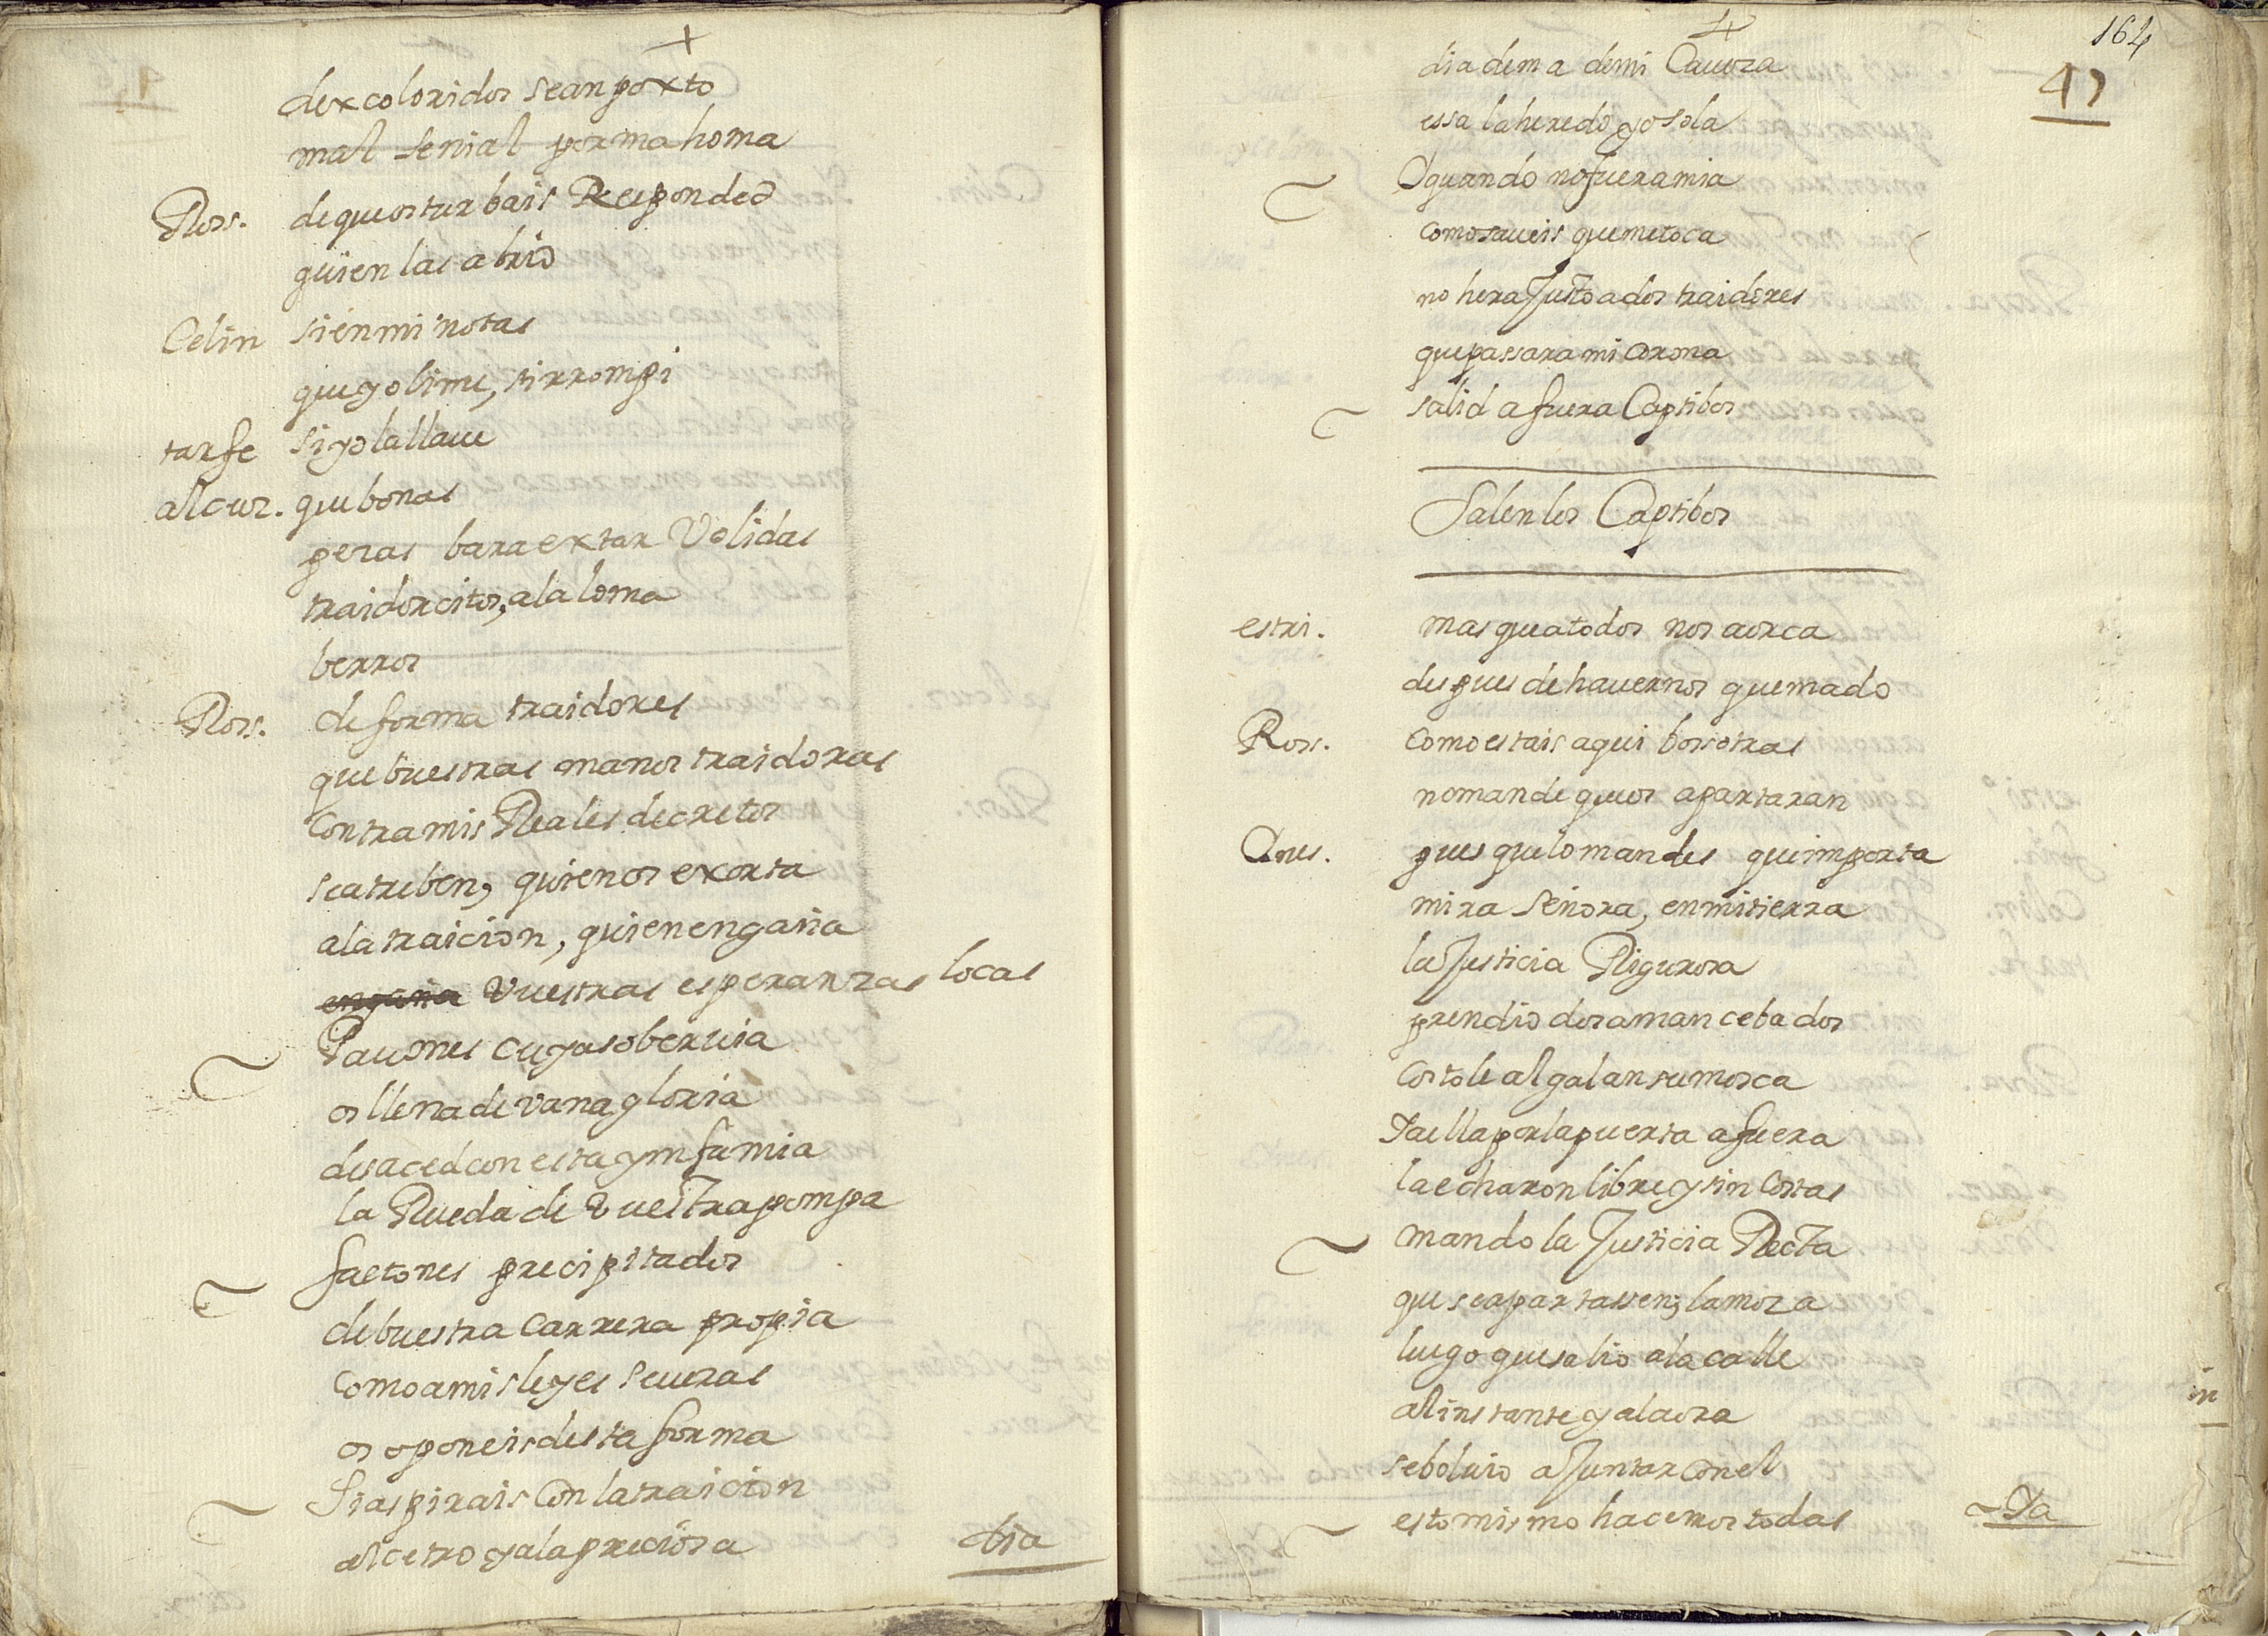 +
dexcoloridos sean poxto
mal señal por mahoma
Ros. de que os turbais Responded
quien las abrio
Celin si en mi notas
que yo lime, si rrompi
tarfe si yo la llaue
alcuz. que bonas
peras bara extar Volidas
traidorcitos, a la loma
berros
Ros. de forma traidores
que buestras manos traidoras
Contra mis Reales decretos
se atreben, quien os exorta
a la traicion, quien engaña
engaña Vuestras esperanzas locas
Pauones cuya soberuia
os llena de vana gloria
desaced con esta ynfamia
la Rueda de Vuestra pompa
faetones precipitados
de buestra carrera propia
como a mis leyes seueras
os oponeis desta forma
si aspirais Con la traicion
al cetro y a la preciosa
dia
+
164
47
diadema de mi Caueza
essa la heredo yo sola
Y quando no fuera mia
como saueis que me toca
no hera Justo a dos traidores
que passara mi Corona
salid a fuera Captibos
Salen los Captibos
estri. mas que a todos nos aorca
despues de hauernos quemado
Ros. como estais aqui bosotras
no mande que os apartaran
Ynes. pues que lo mandes que importa
mira señora, en mi tierra
la Justicia Rigurosa
prendio dos amancebados
costole al galan su mosca
Y a ella por la puerta a fuera
la echaron libre y sin Costas
mando la Justicia Recta
que se apartassen, la moza
luego que salio a la calle
al instante y a la ora
se boluio a Juntar con el
esto mismo hacemos todas
Ya